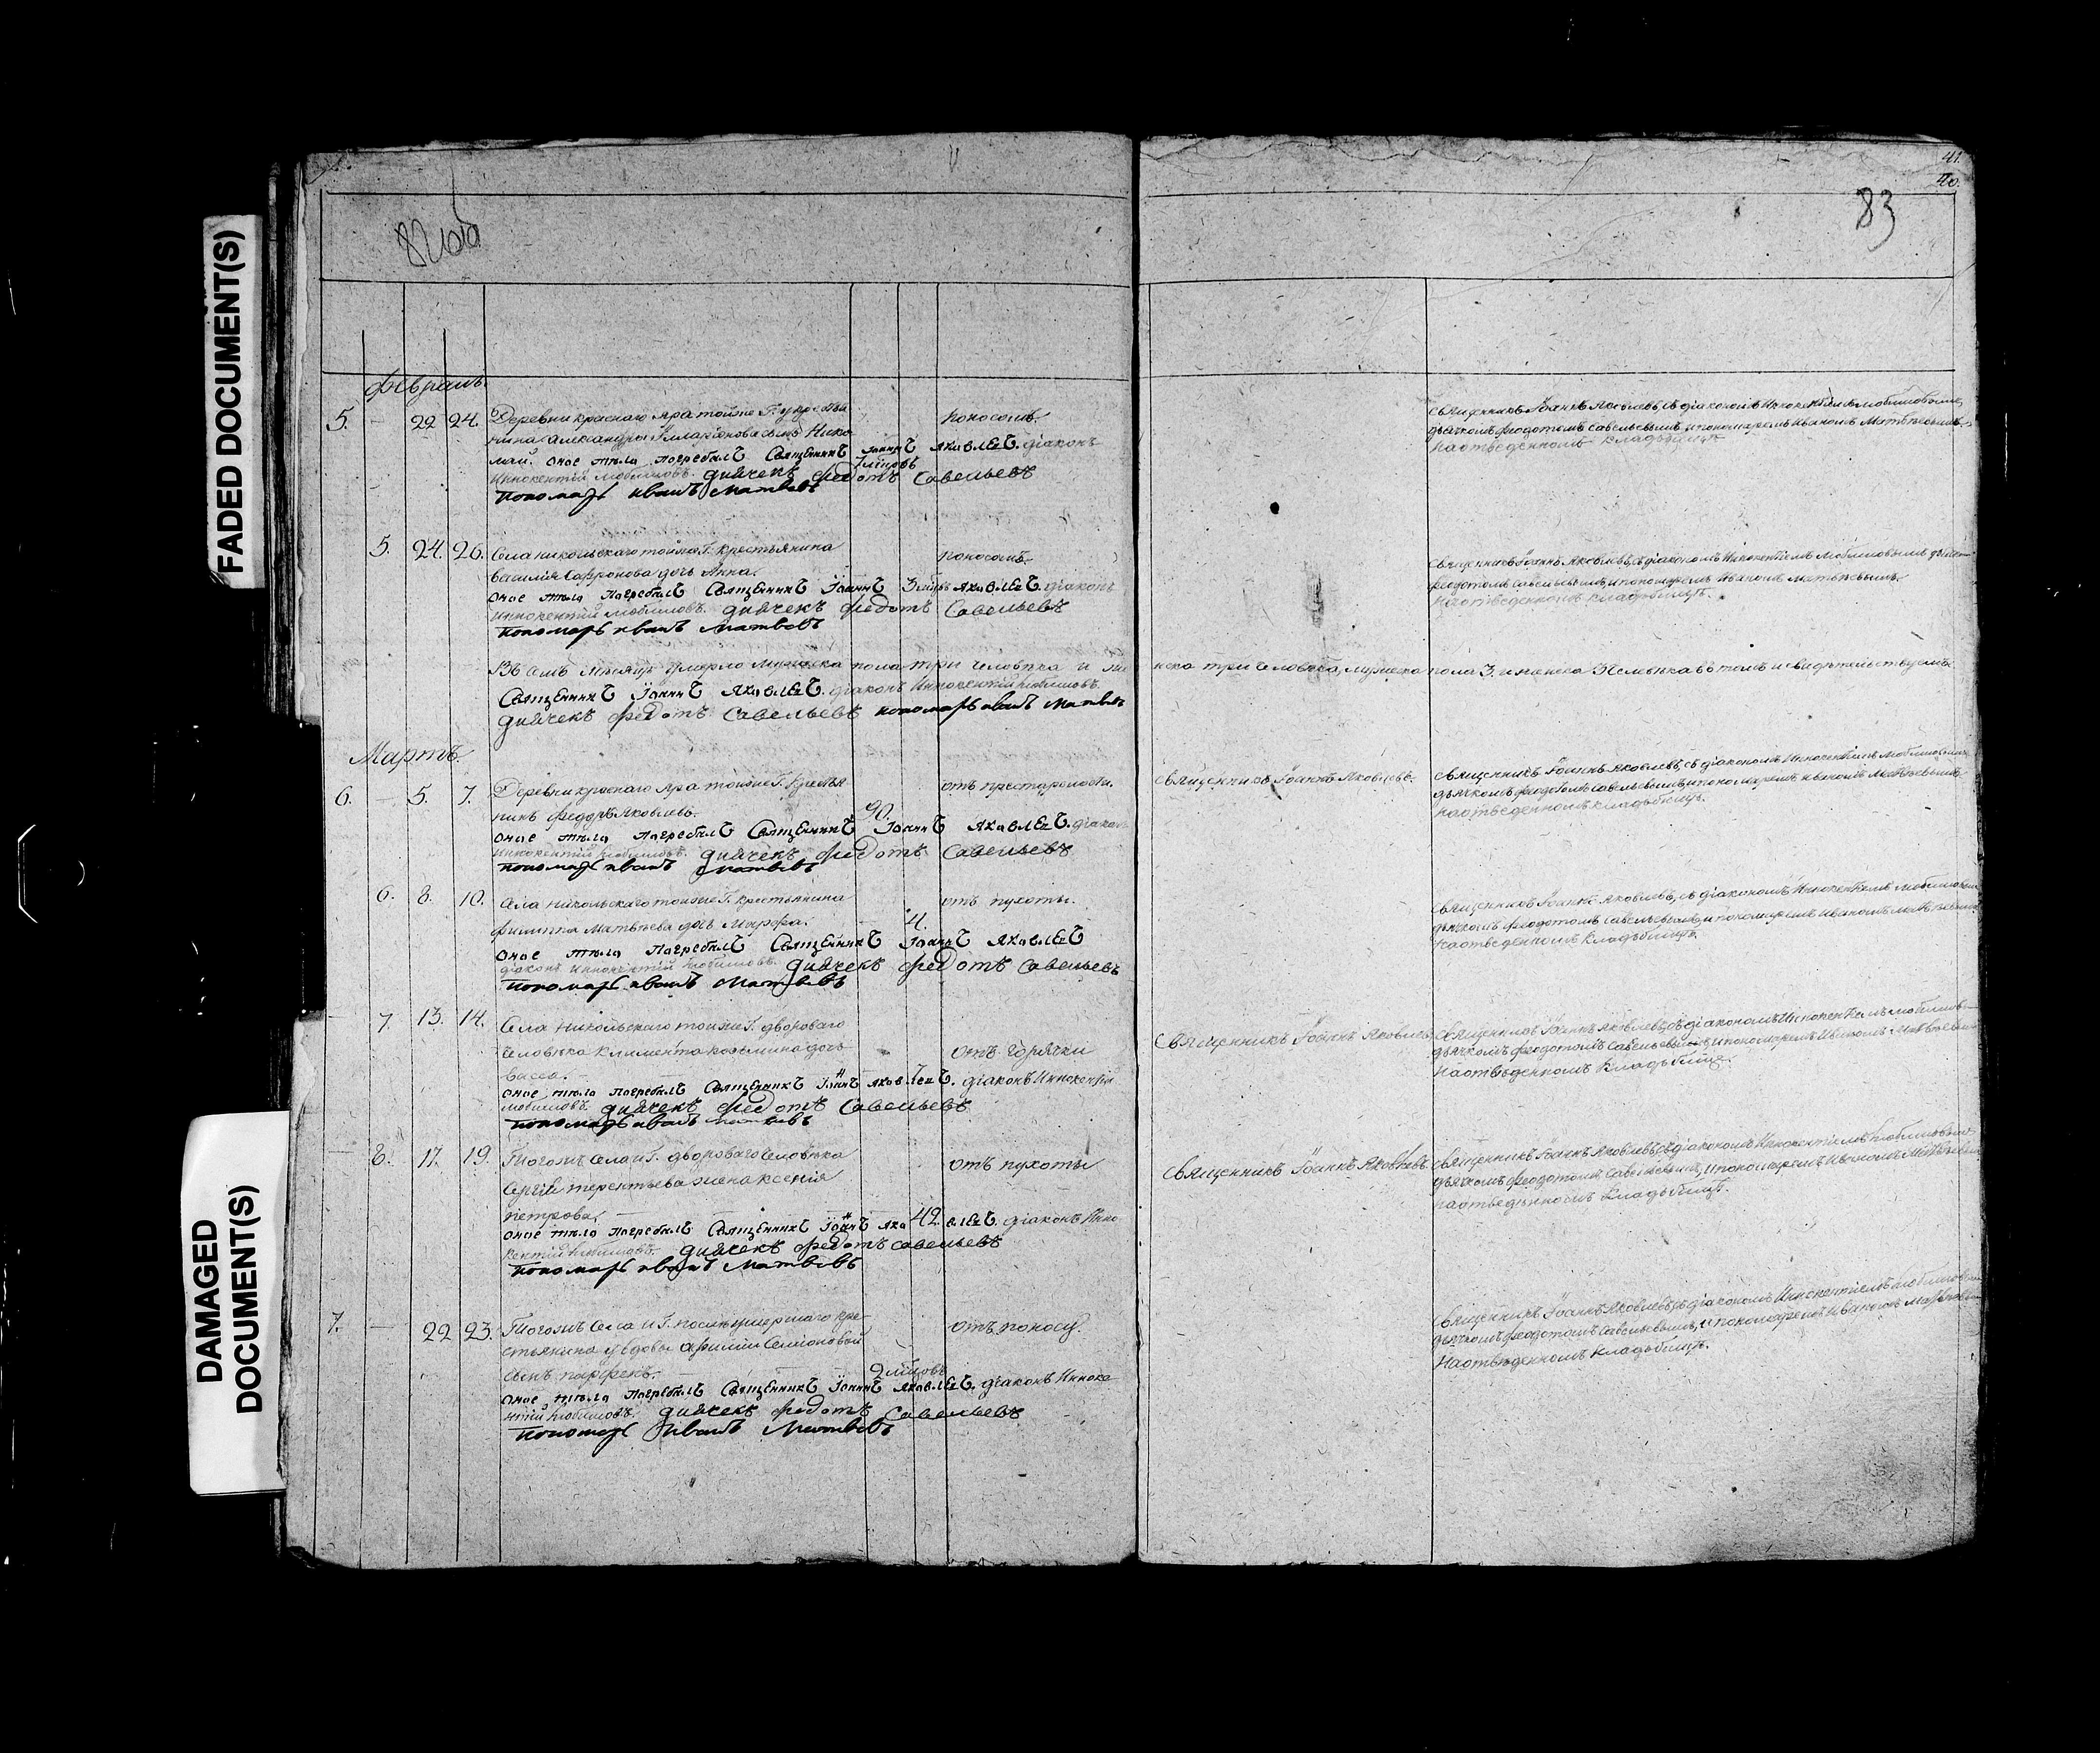 FADED DOCUMENT(S)
DAMAGED
DOCUMENT(S)
41.
40.
82об
83
Февраль.
5. — 22 24. Деревни краснаго яра тойже Г. у крестья
нина Александра Илларіонова сынъ Нико
лай. поносомъ.
7 мцовъ
оное тѣло погребалъ Священникъ Іоаннъ Яковлевъ. діаконъ
Иннокентій Любимовъ. диячекъ Федотъ Савельевъ
пономарь иванъ Матвевъ
Священникъ Іоаннъ Яковлевъ, съ діакономъ Иннокентіемъ Любимовымъ,
дьячкомъ Феодотомъ Савельевымъ и пономаремъ Иваномъ Матвѣевымъ
На отведенномъ кладбищѣ
5. 24. 26. Села никольскаго тойже Г. крестьянина
василія Сафронова дочь Анна.
поносомъ.
оное тѣло погребалъ Священникъ Іоаннъ Яковлевъ. діаконъ
Иннокентій Любимовъ. диячекъ Федотъ Савельевъ
пономарь иванъ Матвевъ
Священникъ Іоаннъ Яковлевъ, съ діакономъ Иннокентіемъ Любимовымъ
Феодотомъ Савельевымъ, и пономаремъ Иваномъ Матвѣевымъ.
На отведенномъ кладбищѣ.
Въ семъ месяцѣ умерло мужеска пола три человѣка и женска три человѣка, мужеска пола 3. и женска 3 человѣка въ томъ и свидѣтельствуемъ
Священникъ Іоаннъ Яковлевъ. діаконъ Иннокентій Любимовъ.
диячекъ Федотъ Савельевъ пономарь иванъ Матвевъ
Мартъ.
6. — 5. 7. Деревни краснаго яра тойже Г. крестья
нинъ Федоръ Яковлевъ.
90.
отъ престарелости.
оное тѣло погребалъ Священникъ Іоаннъ Яковлевъ. діаконъ
Иннокентій Любимовъ. диячекъ Федотъ Савельевъ
пономарь иванъ Матвевъ
Священникъ Іоаннъ Яковлевъ.
Священникъ Іоаннъ Яковлевъ, съ діакономъ Иннокентіемъ Любимовымъ
дьячкомъ Феодотомъ Савельевымъ, и пономаремъ Иваномъ Матвѣевымъ
На отведенномъ кладбищѣ.
6. 8. 10. Села Никольскаго тойже Г. крестьянина
филиппа Матвѣева дочь Марфа.
4.
отъ пухоты.
оное тѣло погребалъ Священникъ Іоаннъ Яковлевъ
діаконъ Иннокентій Любимовъ. диячекъ Федотъ Савельевъ
пономарь иванъ Матвевъ
Священникъ Іоаннъ Яковлевъ, съ діакономъ Иннокентіемъ Любимовымъ
дьячкомъ Феодотомъ Савельевымъ, и пономаремъ Иваномъ Матвѣевымъ
На отведенномъ кладбищѣ.
7. 13. 14. Села Никольскаго тойже Г. двороваго
человѣка климента козьмина дочь
васса.
отъ горячки
оное тѣло погребалъ Священникъ Іоаннъ Яковлевъ. діаконъ Иннокентій
Любимовъ. диячекъ Федотъ Савельевъ
пономарь иванъ матвевъ
Священникъ Іоаннъ Яковлевъ
Священникъ Іоаннъ Яковлевъ, съ діакономъ Иннокентіемъ Любимовымъ
дьячкомъ Феодотомъ Савельевымъ, и пономаремъ Иваномъ Матвѣевымъ
На отведенномъ кладбищѣ.
8. 17. 19. Тогожъ Села и Г. двороваго человѣка
Сергія терентьева жена ксенія
петрова.
42
отъ пухоты
оное тѣло погребалъ Священникъ Іоаннъ Яковлевъ. діаконъ Инно
кентій Любимовъ. диячекъ Федотъ Савельевъ
пономарь иванъ Матвевъ
Священникъ Іоаннъ Яковлевъ.
Священникъ Іоаннъ Яковлевъ, съ діакономъ Иннокентіемъ Любимовымъ
дьячкомъ Феодотомъ Савельевымъ, и пономаремъ Иваномъ Матвѣевымъ
на отведенномъ кладбищѣ.
7. — 22 23. Тогожъ Села и Г. послѣ умершаго кре
стьянина у вдовы Афиміи Семіоновой
сынъ парфенъ.
2 мцовъ
отъ поносу.
оное тѣло погребалъ Священникъ Іоаннъ Яковлевъ. діаконъ Инноке
нтій Любимовъ. диячекъ Федотъ Савельевъ
пономарь Иванъ Матвевъ
Священникъ Іоаннъ Яковлевъ, съ діакономъ Иннокентіемъ Любимовымъ
дьячкомъ Феодотомъ Савельевымъ, и пономаремъ Иваномъ Матвѣевымъ
На отведенномъ кладбищѣ.